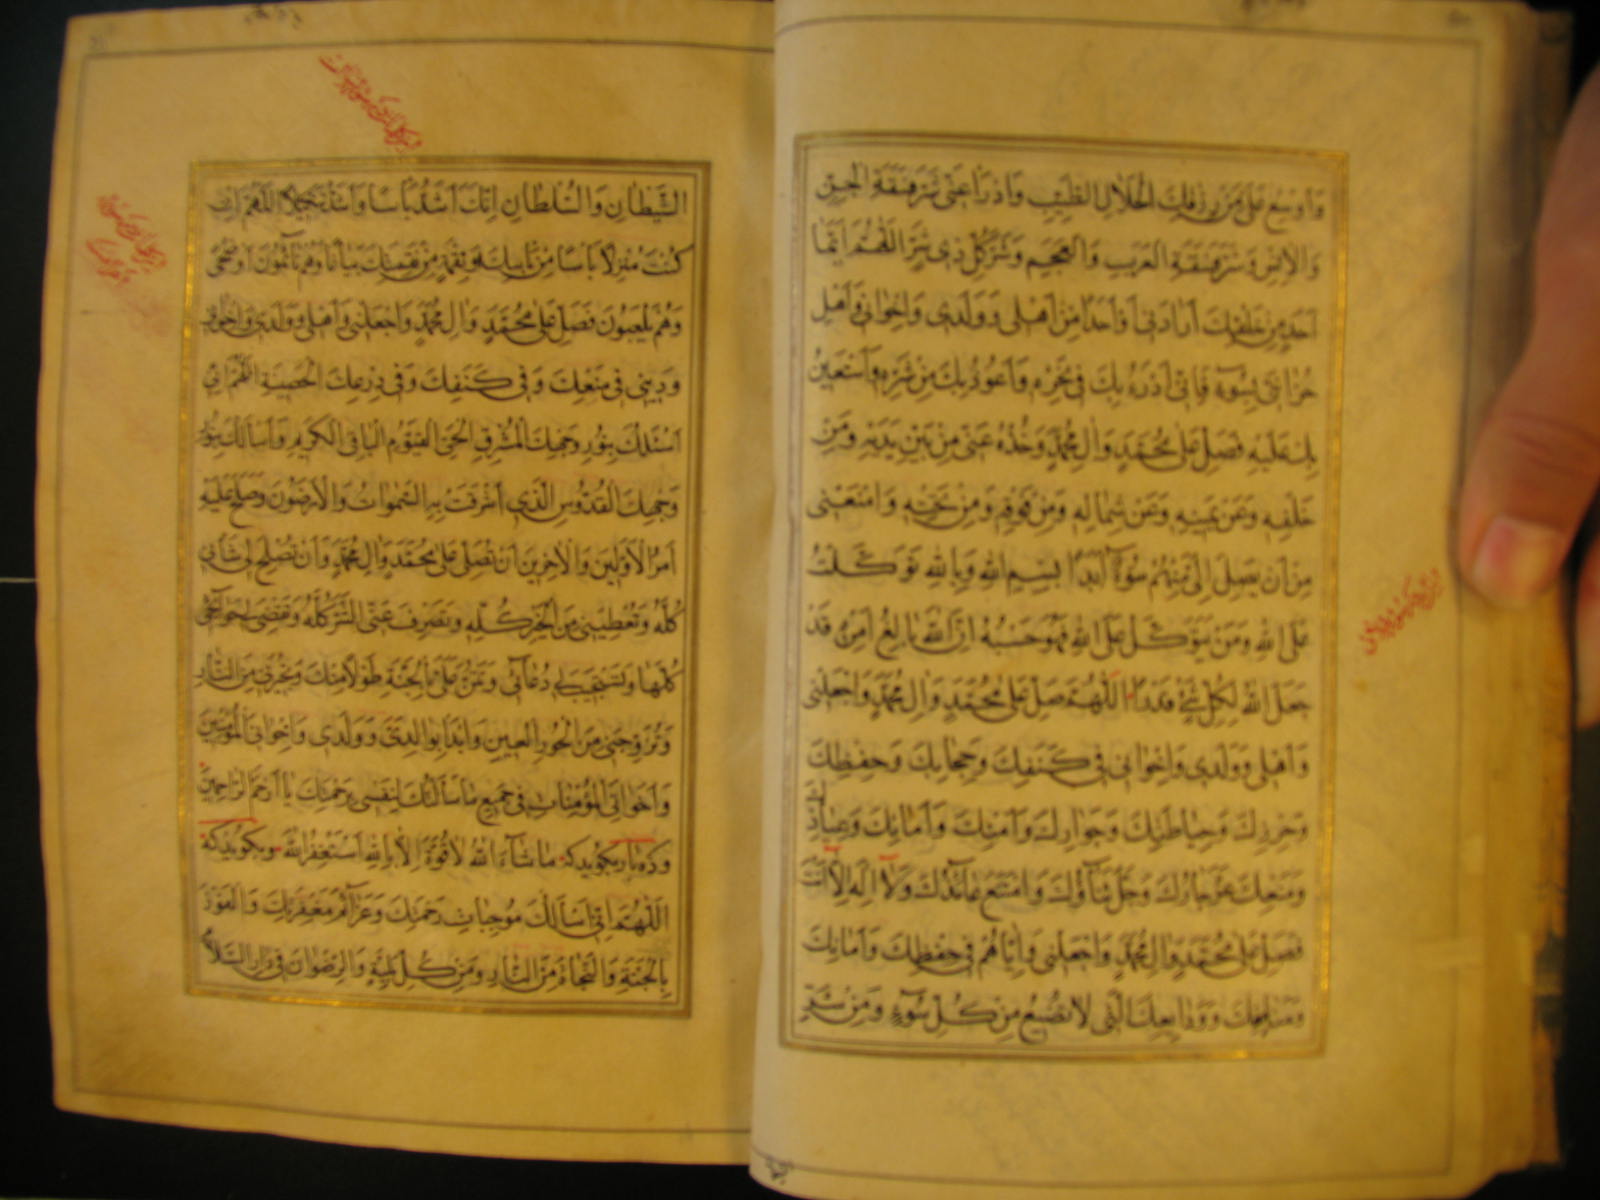 وَاَوْسِعْ عَلَيَّ مِنْ رِزْقِكَ الْحَلَالِ الطَّيِّبِ وَادْرَأْ عَنّى شَرَّ فَسَقَةِ الْجِنِّ
وَالْاِنْسِ وَشَرَّ فَسَقَةِ الْعَرَبِ وَالْعَجَمِ وَشَرَّ كُلِّ ذى شَرٍّ اَللّهُمَّ اَيُّما
اَحَدٍ مِنْ خَلْقِكَ اَرادَنى اَوْ اَحَدًا مِنْ اَهْلى وَوَلَدى وَاِخْوانى وَاَهْلِ
حُزانَتى بِسُوءٍ فَاِنّى اَدْرَءُ بِكَ فى نَحْرِه وَاَعُوذُ بِكَ مِنْ شَرِّه وَاَسْتَعينُ
بِكَ عَلَيْهِ فَصَلِّ عَلى مُحَمَّدٍ وَالِ مُحَمَّدٍ وَخُذْهُ عَنّى مِنْ بَيْنِ يَدَيْهِ وَمِنْ
خَلْفِه وَعَنْ يَمينِه وَعَنْ شِمالِه وَمِنْ فَوْقِه وَمِنْ تَحْتِه وَامْنَعْنى
مِنْ اَنْ يَصِلَ اِلَىَّ مِنْهُمْ سُوءٌ اَبَدًا بِسْمِ اللهِ وَبِاللهِ تَوَكَّلْتُ
عَلَى اللهِ وَمَنْ يَتَوَكَّلْ عَلَى اللهِ فَهُوَ حَسْبُهُ اِنَّ اللهَ بالِغُ اَمْرِه قَدْ
جَعَلَ اللهُ لِكُلِّ شَىْءٍ قَدْرًا اَللّهُمَّ صَلِّ عَلى مُحَمَّدٍ وَالِ مُحَمَّدٍ وَاجْعَلْنى
وَاَهْلى وَوَلَدى وَاِخْوانى فى كَنَفِكَ وَحِجابِكَ وَحِفْظِكَ
وَحِرْزِكَ وَحِياطَتِكَ وَجِوارِكَ وَاَمْنِكَ وَاَمانِكَ وَعِياذِكَ
وَمَنْعِكَ عَزَّ جارُكَ وَجَلَّ ثَناؤُكَ وَامْتَنَعَ عائِذُكَ وَلا اِلهَ اِلّا اَنْتَ
فَصَلِّ عَلى مُحَمَّدٍ وَالِ مُحَمَّدٍ وَاجْعَلْنى وَاِيّاهُمْ فى حِفْظِكَ وَاَمانِكَ
وَوَدايِعِكَ الَّتى لا تَضيعُ مِنْ كُلِّ سُوءٍ وَمِنْ شَرِّ
الشَّيْطانِ وَالسُّلْطانِ اِنَّكَ اَشَدُّ بَاْسًا وَاَشَدُّ تَنْكيلًا اَللّهُمَّ اِنْ
كُنْتَ مُنْزِلًا بَاْسًا مِنْ بَاْسِكَ وَنَقِمَةً مِنْ نَقِمَتِكَ بَياتًا وَهُمْ نائِمُونَ اَوْ ضُحًى
وَهُمْ يَلْعَبُونَ فَصَلِّ عَلى مُحَمَّدٍ وَالِ مُحَمَّدٍ وَاجْعَلْنى وَاَهْلى وَوَلَدى وَاِخْوانى
وَدينى فى مَنْعِكَ وَفى كَنَفِكَ وَفى دِرْعِكَ الْحَصينَةِ اَللّهُمَّ اِنّى
اَسْئَلُكَ بِنُورِ وَجْهِكَ الْمُشْرِقِ الْحَىِّ الْقَيُّومِ الْباقِى الْكَريمِ وَاَسْاَلُكَ بِنُورِ
وَجْهِكَ الْقُدُّوسِ الَّذى اَشْرَقَتْ بِهِ السَّمواتُ وَالْاَرَضُونَ وَصَلَحَ عَلَيْهِ
اَمْرُ الْاَوَّلينَ وَالْاخِرينَ اَنْ تُصَلِّىَ عَلى مُحَمَّدٍ وَالِ مُحَمَّدٍ وَاَنْ تُصْلِحَ لى شَاْنى
كُلَّهُ وَتُعْطِيَنى مِنَ الْخَيْرِ كُلِّه وَتَصْرِفَ عَنِّى الشَّرَّ كُلَّهُ وَتَقْضِىَ لى حَوائِجى
كُلَّها وَتَسْتَجيبَ لى دُعائى وَتَمُنَّ عَلَىَّ بِالْجَنَّةِ طَوْلًا مِنْكَ وَتُجيرَنى مِنَ النّارِ
وَتُزَوِّجَنى مِنَ الْحُورِ الْعينِ وَابْدَا بِوالِدَىَّ وَوَلَدى وَاِخْوانِىَ الْمُؤْمِنينَ
وَاَخَواتِىَ الْمُؤْمِناتِ فى جَميعِ ما سَاَلْتُكَ لِنَفْسى بِرَحْمَتِكَ يا اَرْحَمَ الرّاحِمينَ
وده بار بگويد كه ما شاءَ اللهُ لا قُوَّةَ اِلّا بِاللهِ اَسْتَغْفِرُ اللهَ وبگويد كه
اَللّهُمَّ اِنّى اَسْاَلُكَ مُوجِباتِ رَحْمَتِكَ وَعَزائِمَ مَغْفِرَتِكَ وَالْفَوْزَ
بِالْجَنَّةِ وَالنَّجاةَ مِنَ النّارِ وَمِنْ كُلِّ بَلِيَّةٍ وَالرِّضْوانَ فى دارِ السَّلامِ